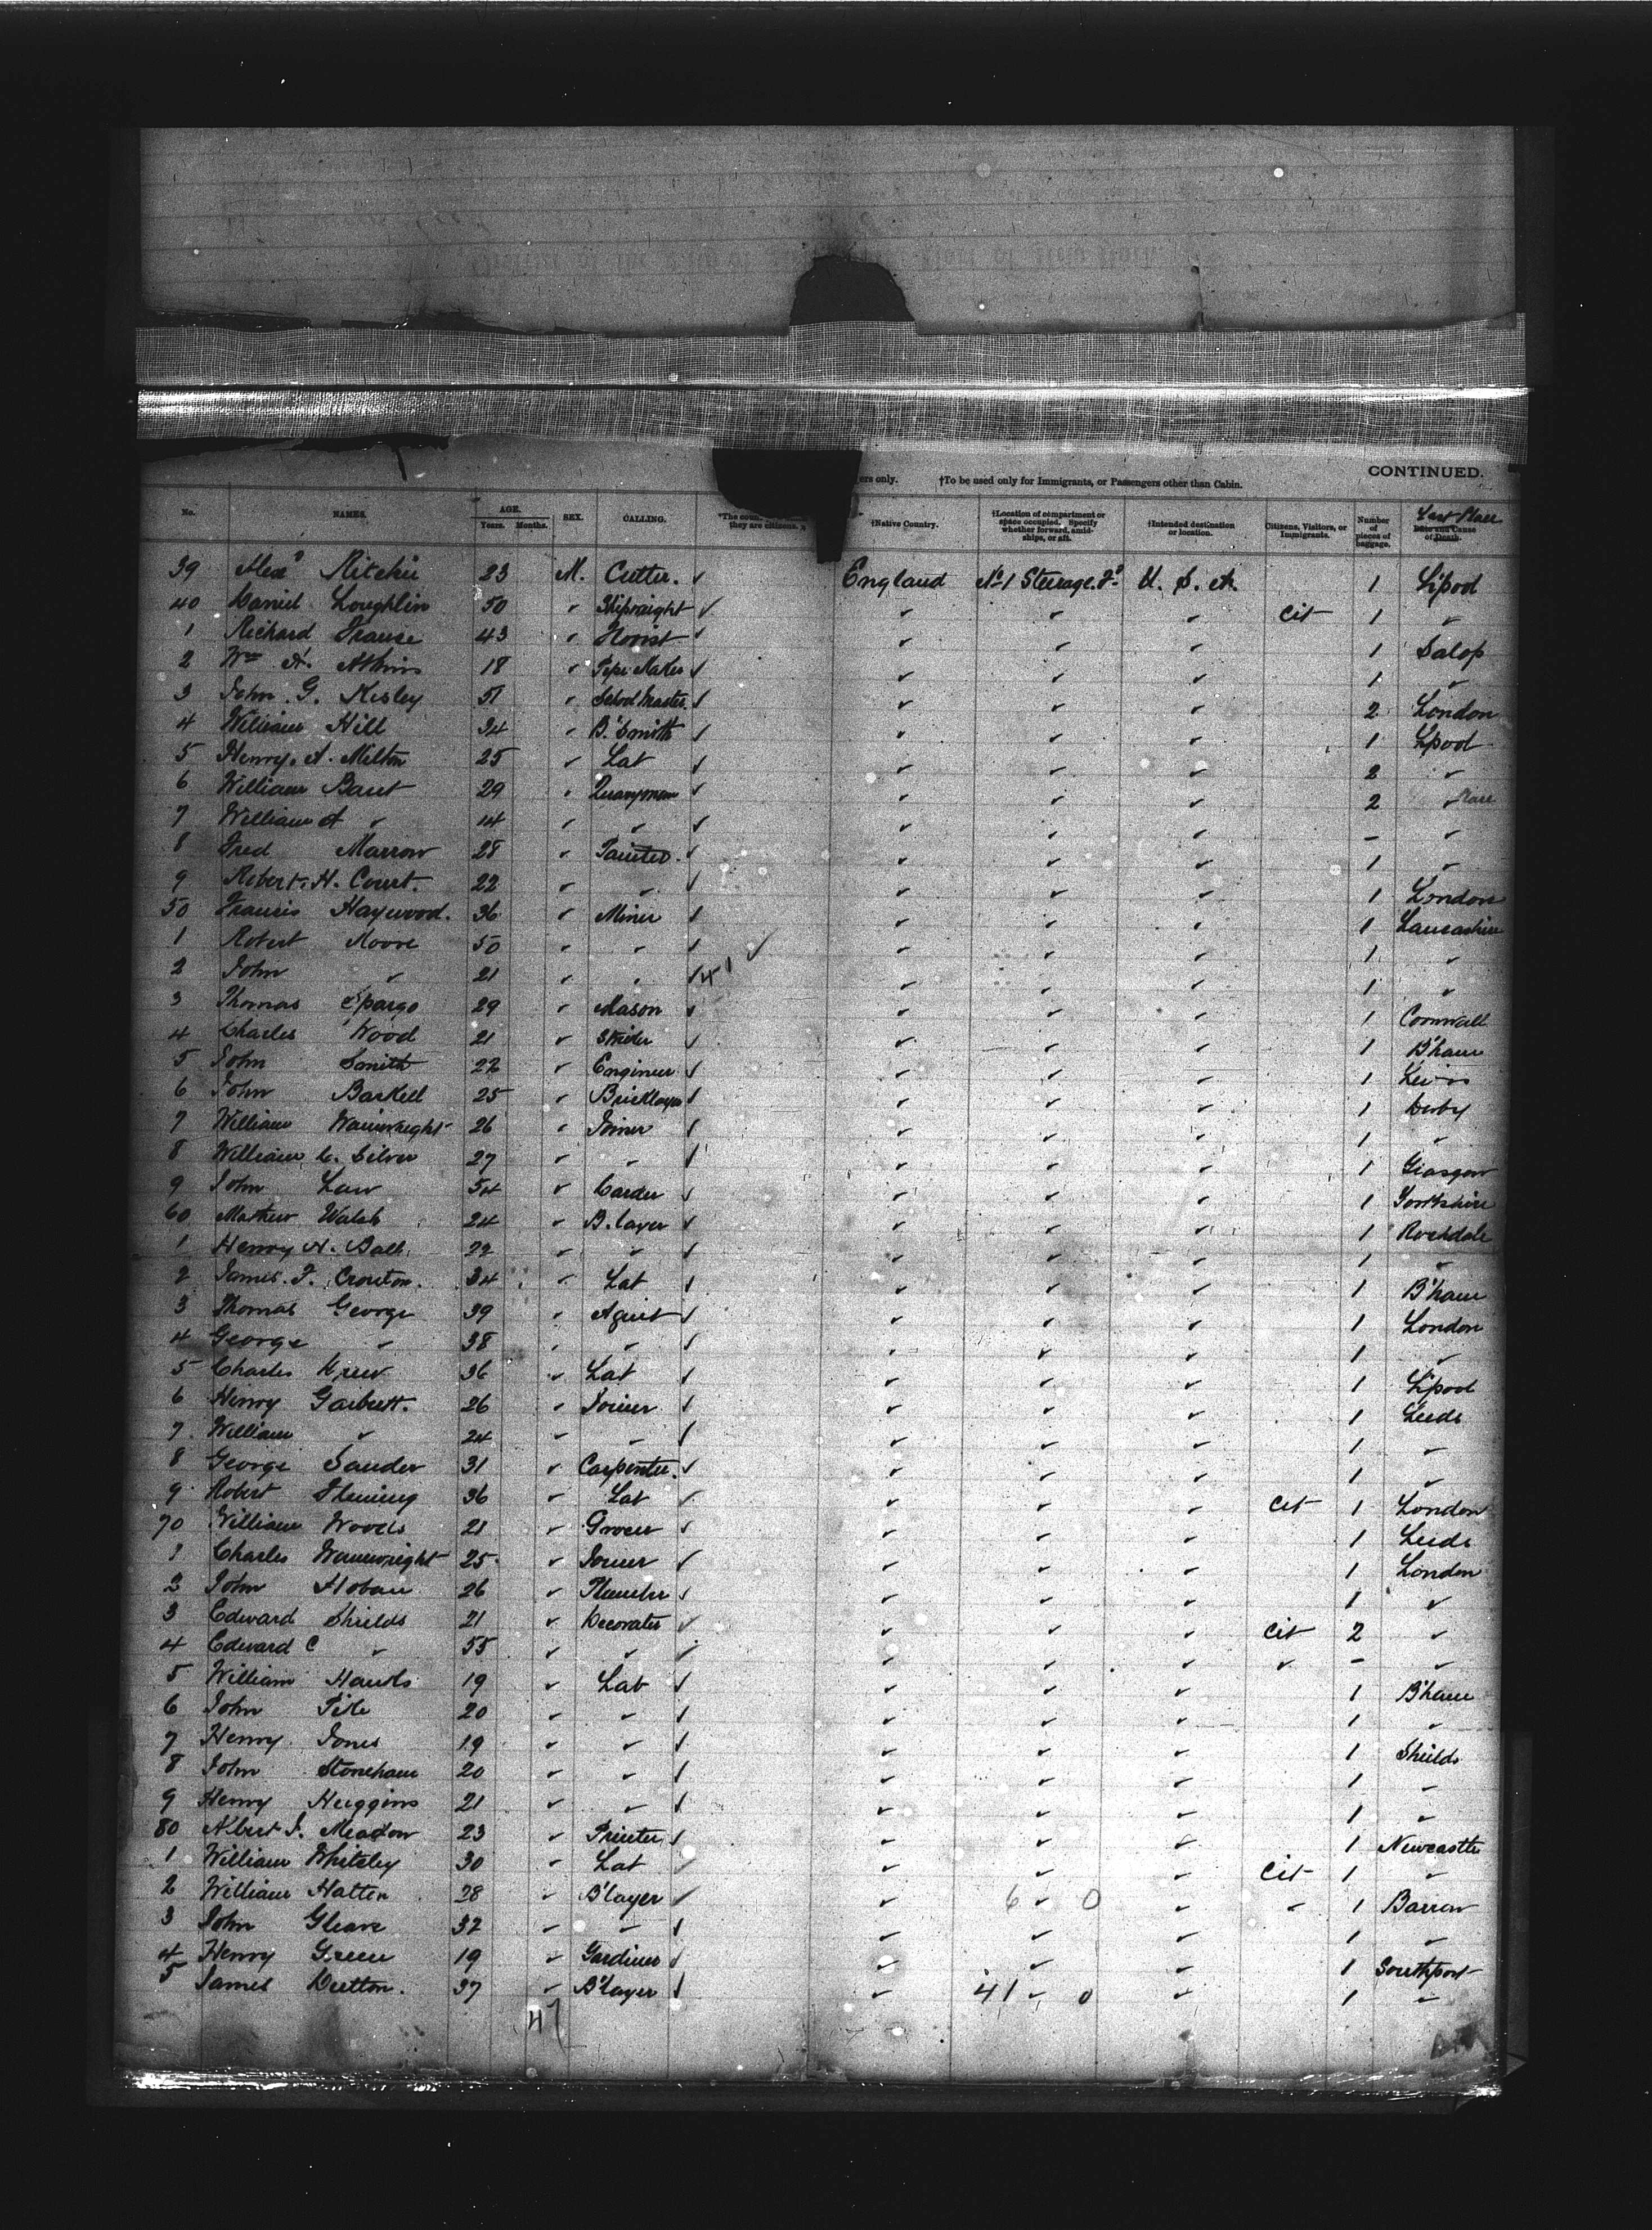 CONTINUED.
ers only. †To be used only for Immigrants, or Passengers other than Cabin.
No. NAMES. AGE. Years. Months. SEX. CALLING. they are citizens. †Native Country. †Location of compartment or space occupied. Specify whether forward, amidships, or aft. †Intended destination or location. Citizens, Visitors, or Immigrants. Number of pieces of baggage. Last Place Date and Cause of Death.
39 Alexr Ritchie 23 M. Cutter. England No 1 Steerage. Fd U. S. A. 1 L'pool
40 Daniel Loughlin 50 " Shipwright " " " Cit 1 "
1 Richard 43 " " " " 1 Salop
2 Wm H. Atkins 18 " Pipe Maker " " " 1 "
3 John G. Kisley 51 " School Master " " " 2 London
4 William Hill 34 " B'Smith " " " 1 L'pool
5 Henry A. Milton 25 " Lab " " " 2 "
6 William 29 " Quarryman " " " 2 "
7 William A " 14 " " " " " - "
8 Fred Marrow 28 " Painter. " " " 1 "
9 Robert H. Court. 22 " " " " " 1 London
50 Francis Haywood. 36 " Miner " " " 1 Lancashire
1 Robert Moore 50 " " " " " 1 "
2 John " 21 " " 41 " " " 1 "
3 Thomas Spargo 29 " Mason " " " 1 Cornwall
4 Charles Wood 21 " " " " 1 B'ham
5 John Smith 22 " Engineer " " " 1
6 John Baskell 25 " Bricklayer " " " 1 Derby
7 William Wainwright 26 " Joiner " " " 1 "
8 William C. Silver 27 " " " " " 1 Glasgow
9 John Law 54 " Carder " " " 1 Yorkshire
60 Mathew Walsh 24 " B.layer " " " 1 Rochdale
1 Henry H. Ball 22 " " " " " 1 "
2 James. F. Croxton. 34 " Lab " " " 1 B'ham
3 Thomas George 39 " Agent " " " 1 London
4 George " 38 " " " " " 1 "
5 Charles Drew 36 " Lab " " " 1 L'pool
6 Henry Garbutt. 26 " Joiner " " " 1 Leeds
7 William " 24 " " " " " 1 "
8 George Sander 31 " Carpenter. " " " 1 "
9 Robert Fleming 36 " Lab " " " Cit 1 London
70 William Woods 21 " Grocer " " " 1 Leeds
1 Charles Wainwright 25 " Joiner " " " 1 London
2 John Hoban 26 " Plumber " " " 1 "
3 Edward Shields 21 " Decorator " " " Cit 2 "
4 Edward C " 55 " " " " " " - "
5 William Hawks 19 " Lab " " " 1 B'ham
6 John 20 " " " " " 1 "
7 Henry Jones 19 " " " " " 1 Shields
8 John Stoneham 20 " " " " " 1 "
9 Henry Huggins 21 " " " " " 1 "
80 Albert J. Meadow 23 " Printer " " " 1 Newcastle
1 William Whiteley 30 " Lab " " " Cit 1 "
2 William Hatten 28 " B'layer " 6 " 0 " " 1 Barrow
3 John Gleave 32 " " " " " 1 "
4 Henry Green 19 " Gardiner " " " 1 Southport
5 James Dutton. 37 " B'layer " 41 " 0 " 1 "
47